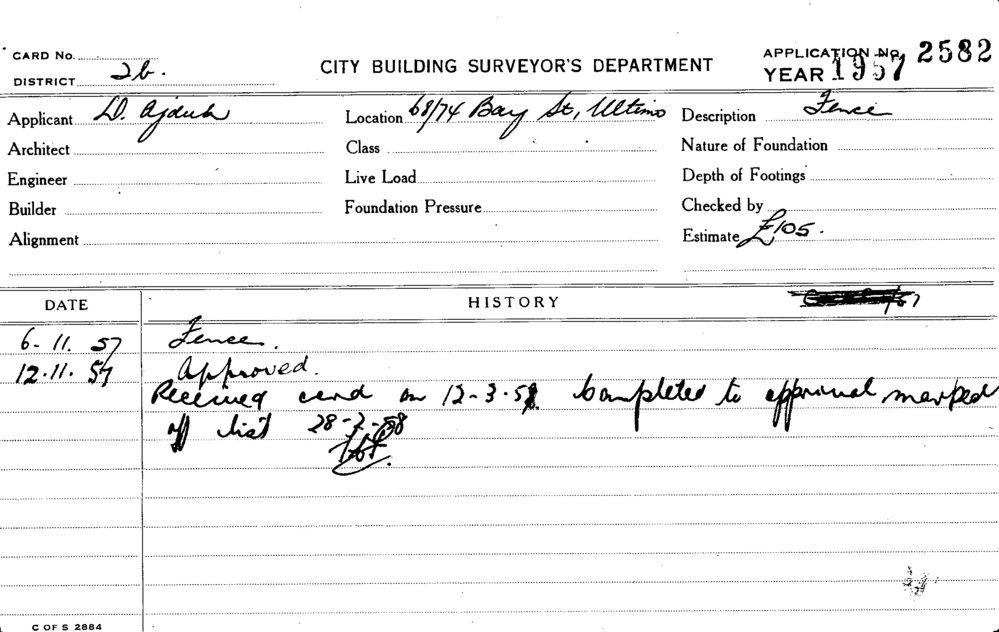 CARD No.
DISTRICT 2b.
CITY BUILDING SURVEYOR'S DEPARTMENT
APPLICATION No. 2582
YEAR 1957
Applicant D. Ajduk Location 68/74 Bay St, Ultimo Description Fence
Architect Class Nature of Foundation
Engineer Live Load Depth of Footings
Builder Foundation Pressure Checked by
Alignment Estimate £105.
DATE HISTORY
6-11.57 Fence.
12.11.57 Approved.
Received card on 12-3-58 Completed to approval marked
off list 28-2-58
C OF S 2884